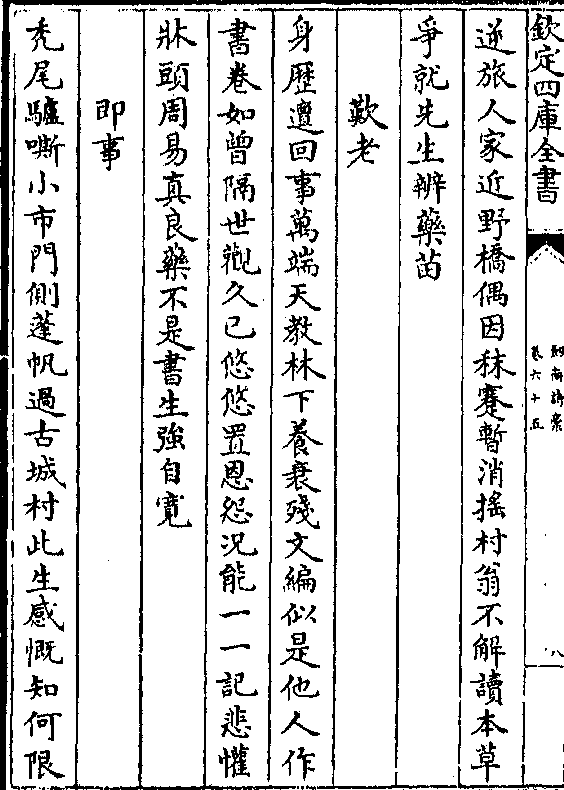 欽定四庫全書
劍南詩藁
卷六十五
八
逆旅人家近野橋偶因秣蹇暫消揺村翁不解讀本草
爭就先生辨藥苗
歎老
身歷邅回事萬端天教林下養衰殘文編似是他人作
書卷如曾隔世觀久已悠悠置恩怨況能一一記悲懽
牀頭周易真良藥不是書生強自寛
即事
禿尾驢嘶小市門側蓬帆過古城村此生感慨知何限